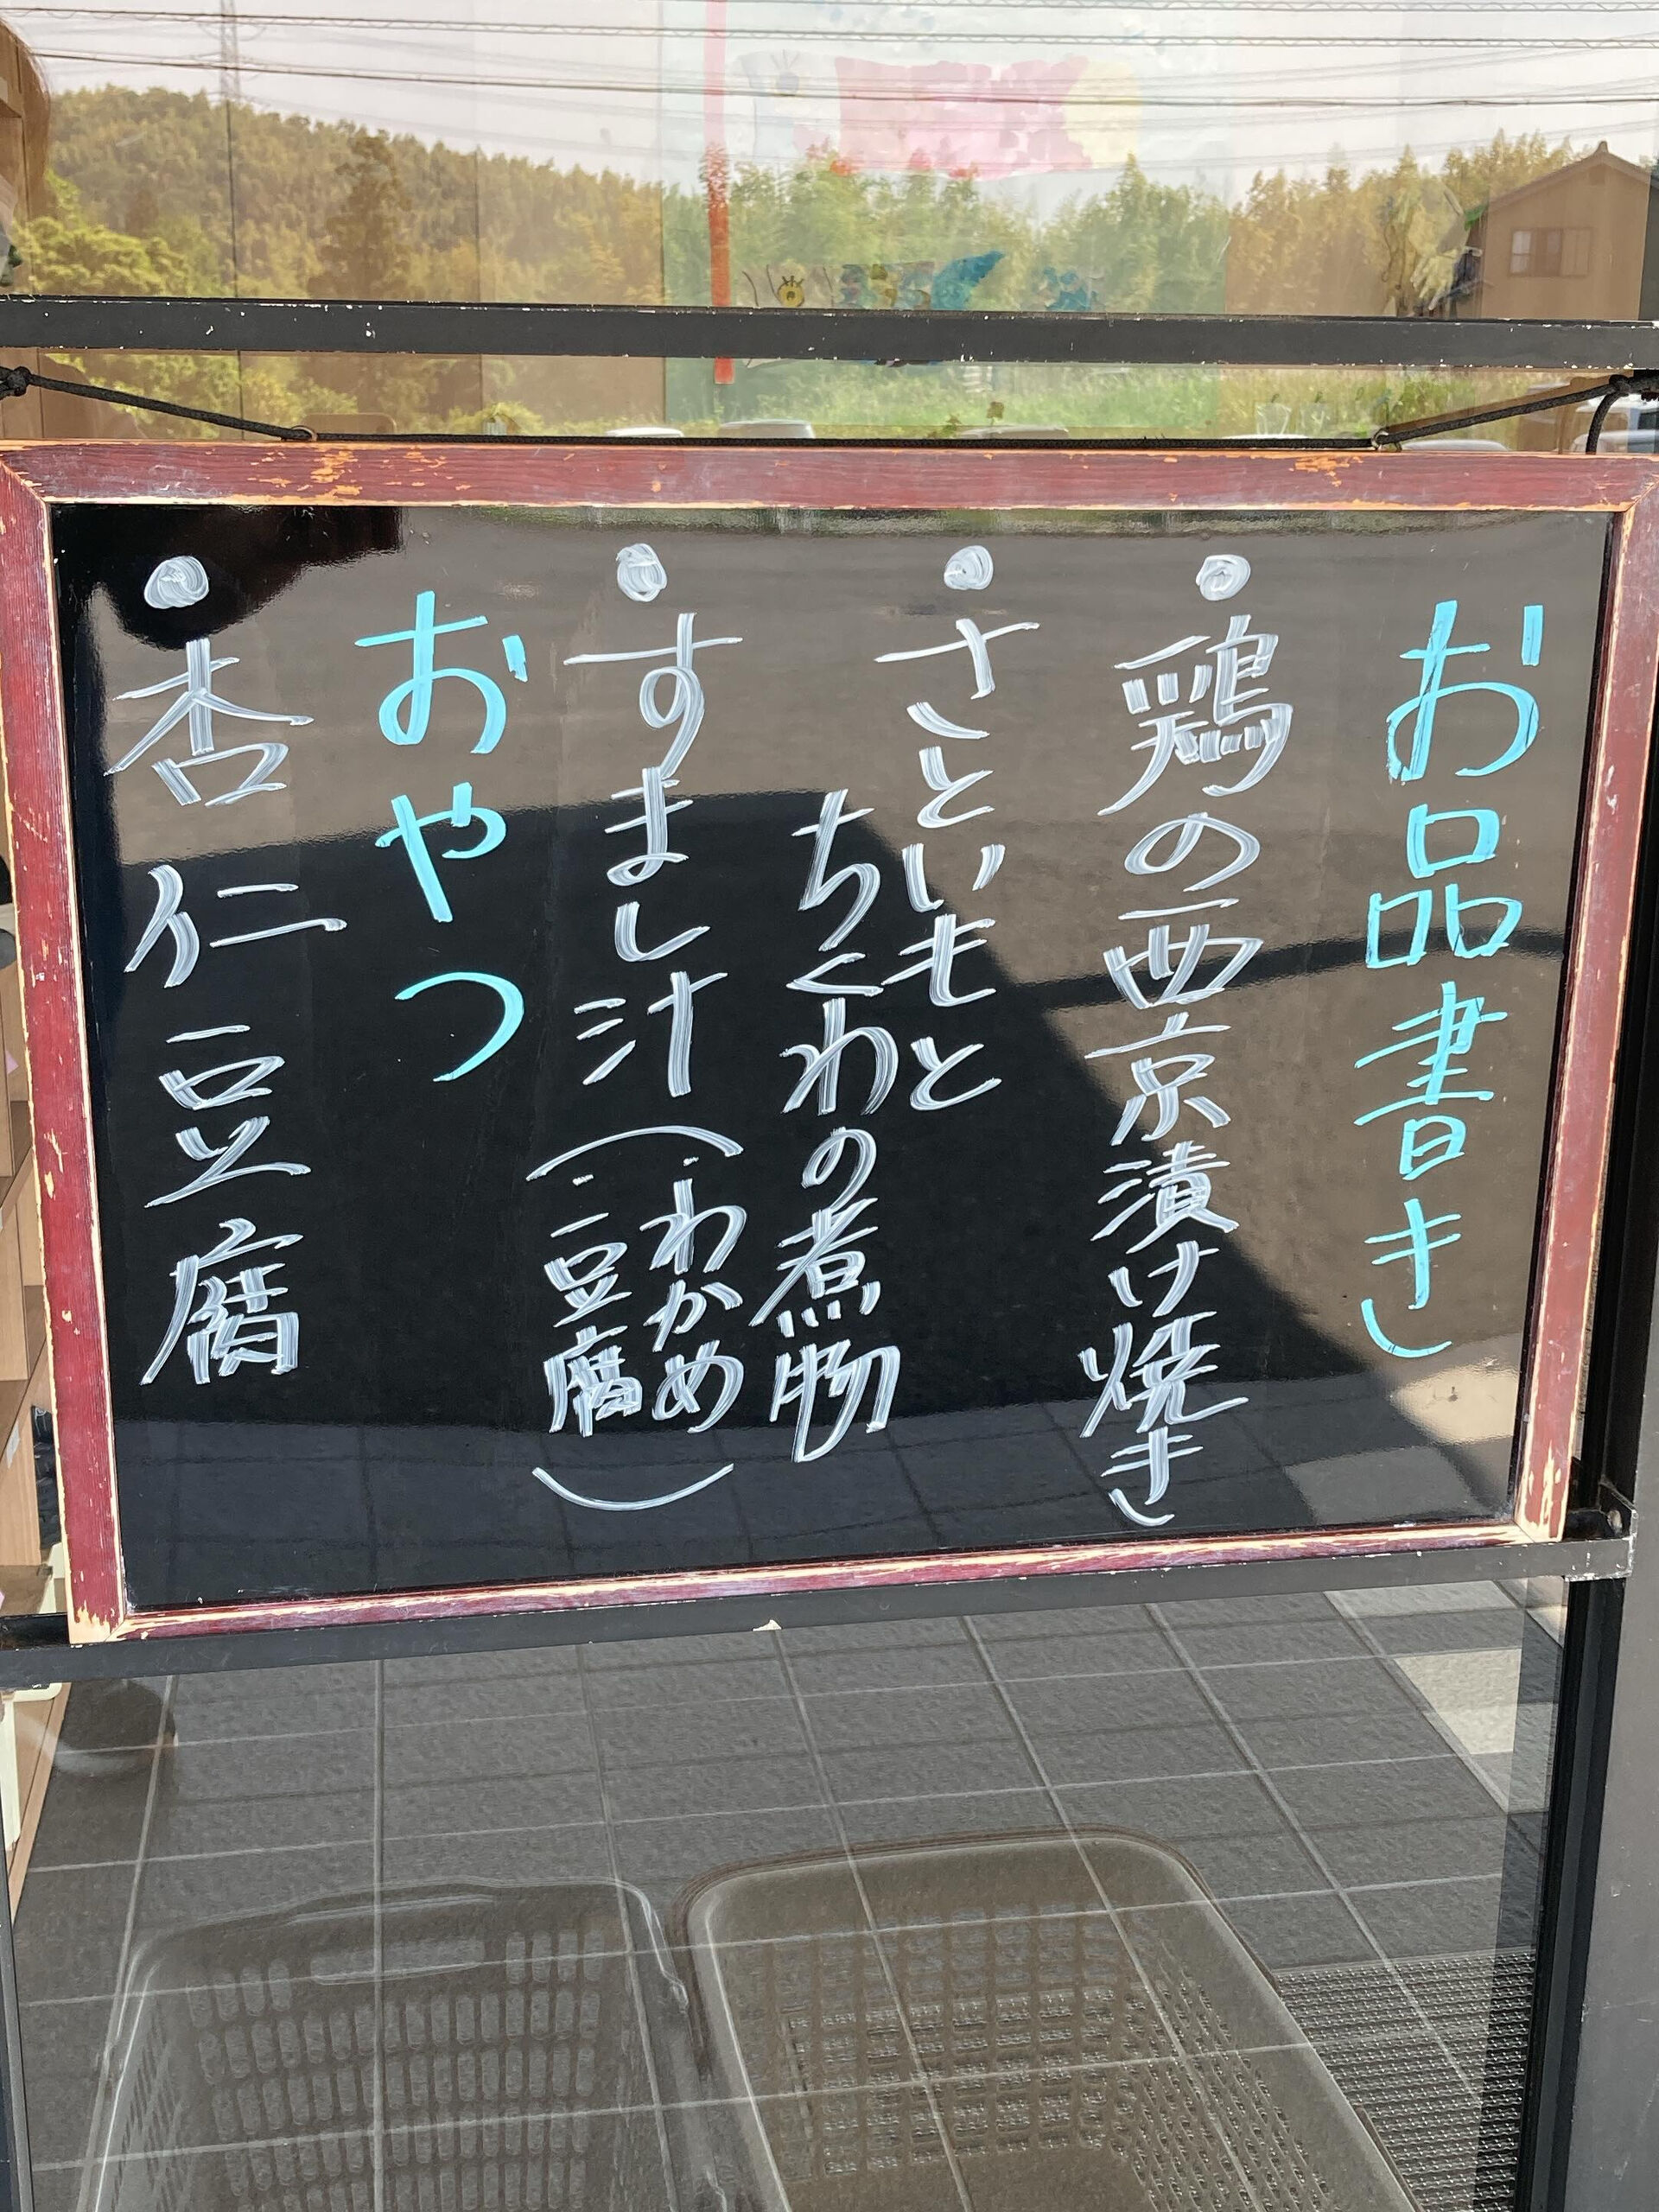 お品書き
・鶏の西京漬け焼き
・さといもと
ちくわの煮物
・すまし汁(・わかめ
・豆腐)
おやつ
・杏仁豆腐